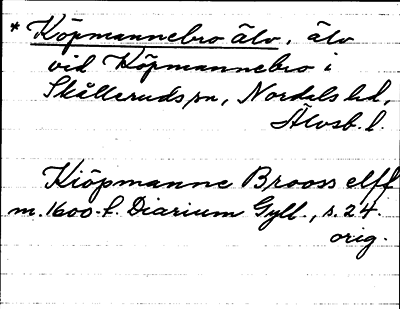 * Köpmannebro älv, älv
vid Köpmannebro i
Skålleruds sn, Nordals hd,
Älvsb. l.
Kiöpmanne Brooss elff
m. 1600-t. Diarium Gyll., s. 24.
orig.